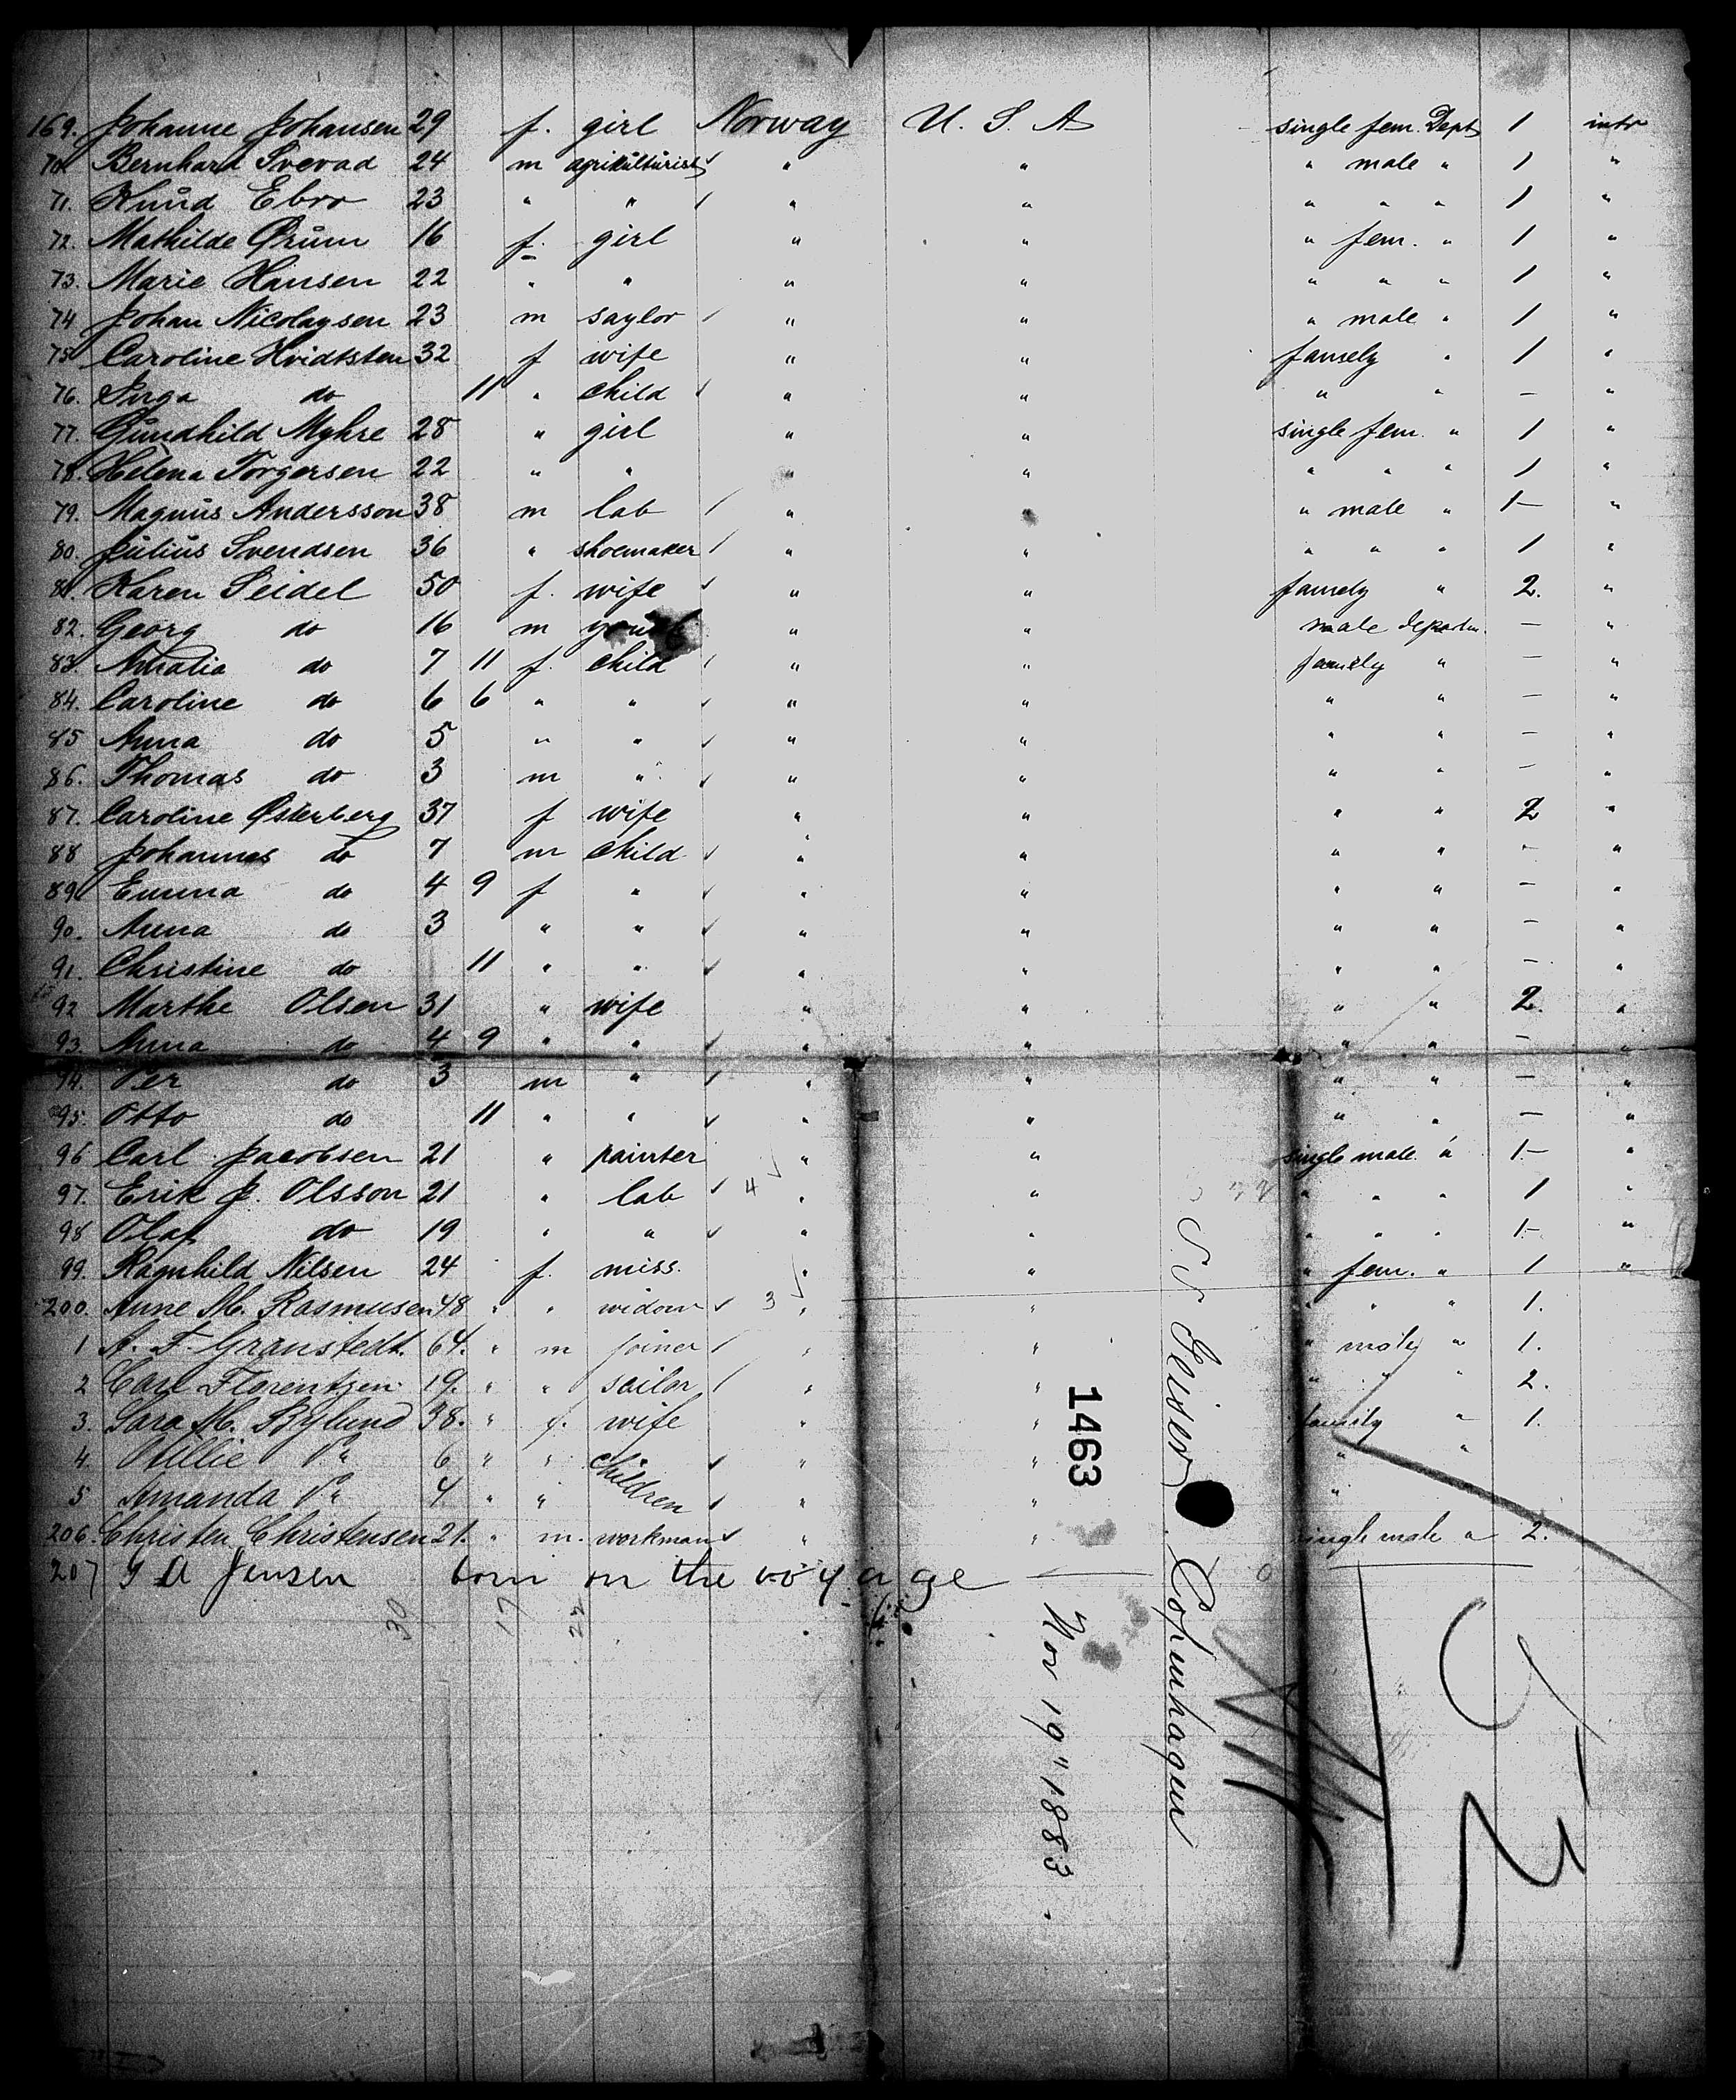 169. Johanne Johansen 29 f. girl Norway U. S. A single fem. Dept 1 intr
70. Bernhard Svevad 24 m agrikulturist " " " male " 1 "
71. Knud Ebro 23 " " " " " " " 1 "
72. Mathilde Ørum 16 f. girl " " " fem. " 1 "
73. Marie Hansen 22 " " " " " " " 1 "
74 Johan Nicolaysen 23 m saylor " " " male " 1 "
75 Caroline Hvidtsten 32 f wife " " famely " 1 "
76. Inga do 11 " child " " " " – "
77. Gundhild Myhre 28 " girl " " single fem. " 1 "
78. Helena Torgersen 22 " " " " " " " 1 "
79. Magnus Andersson 38 m lab " " " male " 1– "
80. Julius Svendsen 36 " shoemaker " " " " " 1 "
81. Karen Seidel 50 f. wife " " famely " 2. "
82. Georg do 16 m " " male departm. – "
83. Amalia do 7 11 f. child " " famely " – "
84. Caroline do 6 6 " " " " " " – "
85 Anna do 5 " " " " " " – "
86. Thomas do 3 m " " " " " – "
87. Caroline Østerberg 37 f wife " " " " 2 "
88 Johannes do 7 m child " " " " – "
89. Emma do 4 9 f " " " " " – "
90. Anna do 3 " " " " " " – "
91. Christine do 11 " " " " " " – "
92 Marthe Olsen 31 " wife " " " " 2. "
93. Anna do 4 9 " " " " " " – "
94. Per do 3 m " " " " " – "
95. Otto do 11 " " " " " " – "
96 Carl Jacobsen 21 " painter " " single male " 1– "
97. Erik J. Olsson 21 " lab 4 " " " " " 1 "
98 Olaf do 19 " " " " " " " 1– "
99. Ragnhild Nilsen 24 f. miss. " " " fem. " 1 "
200. Anne M. Rasmusen 48 " " widow 3 " " " " " 1.
1 A. F. Granstedt. 64. " m joiner " " " male " 1.
2 Carl Florentzen 19. " " sailor " " " " " 2.
3. Sara M. Bylund 38. " f. wife " " family " 1.
4. 6 " " children " " " "
5 Amanda 4 " " " " "
206. Christen Christensen 21. " m. workman " " single male " 2.
207 Jensen born on the voyage
30 17 22
1463
S S Geiser Copenhagen
Nov 19" 1883